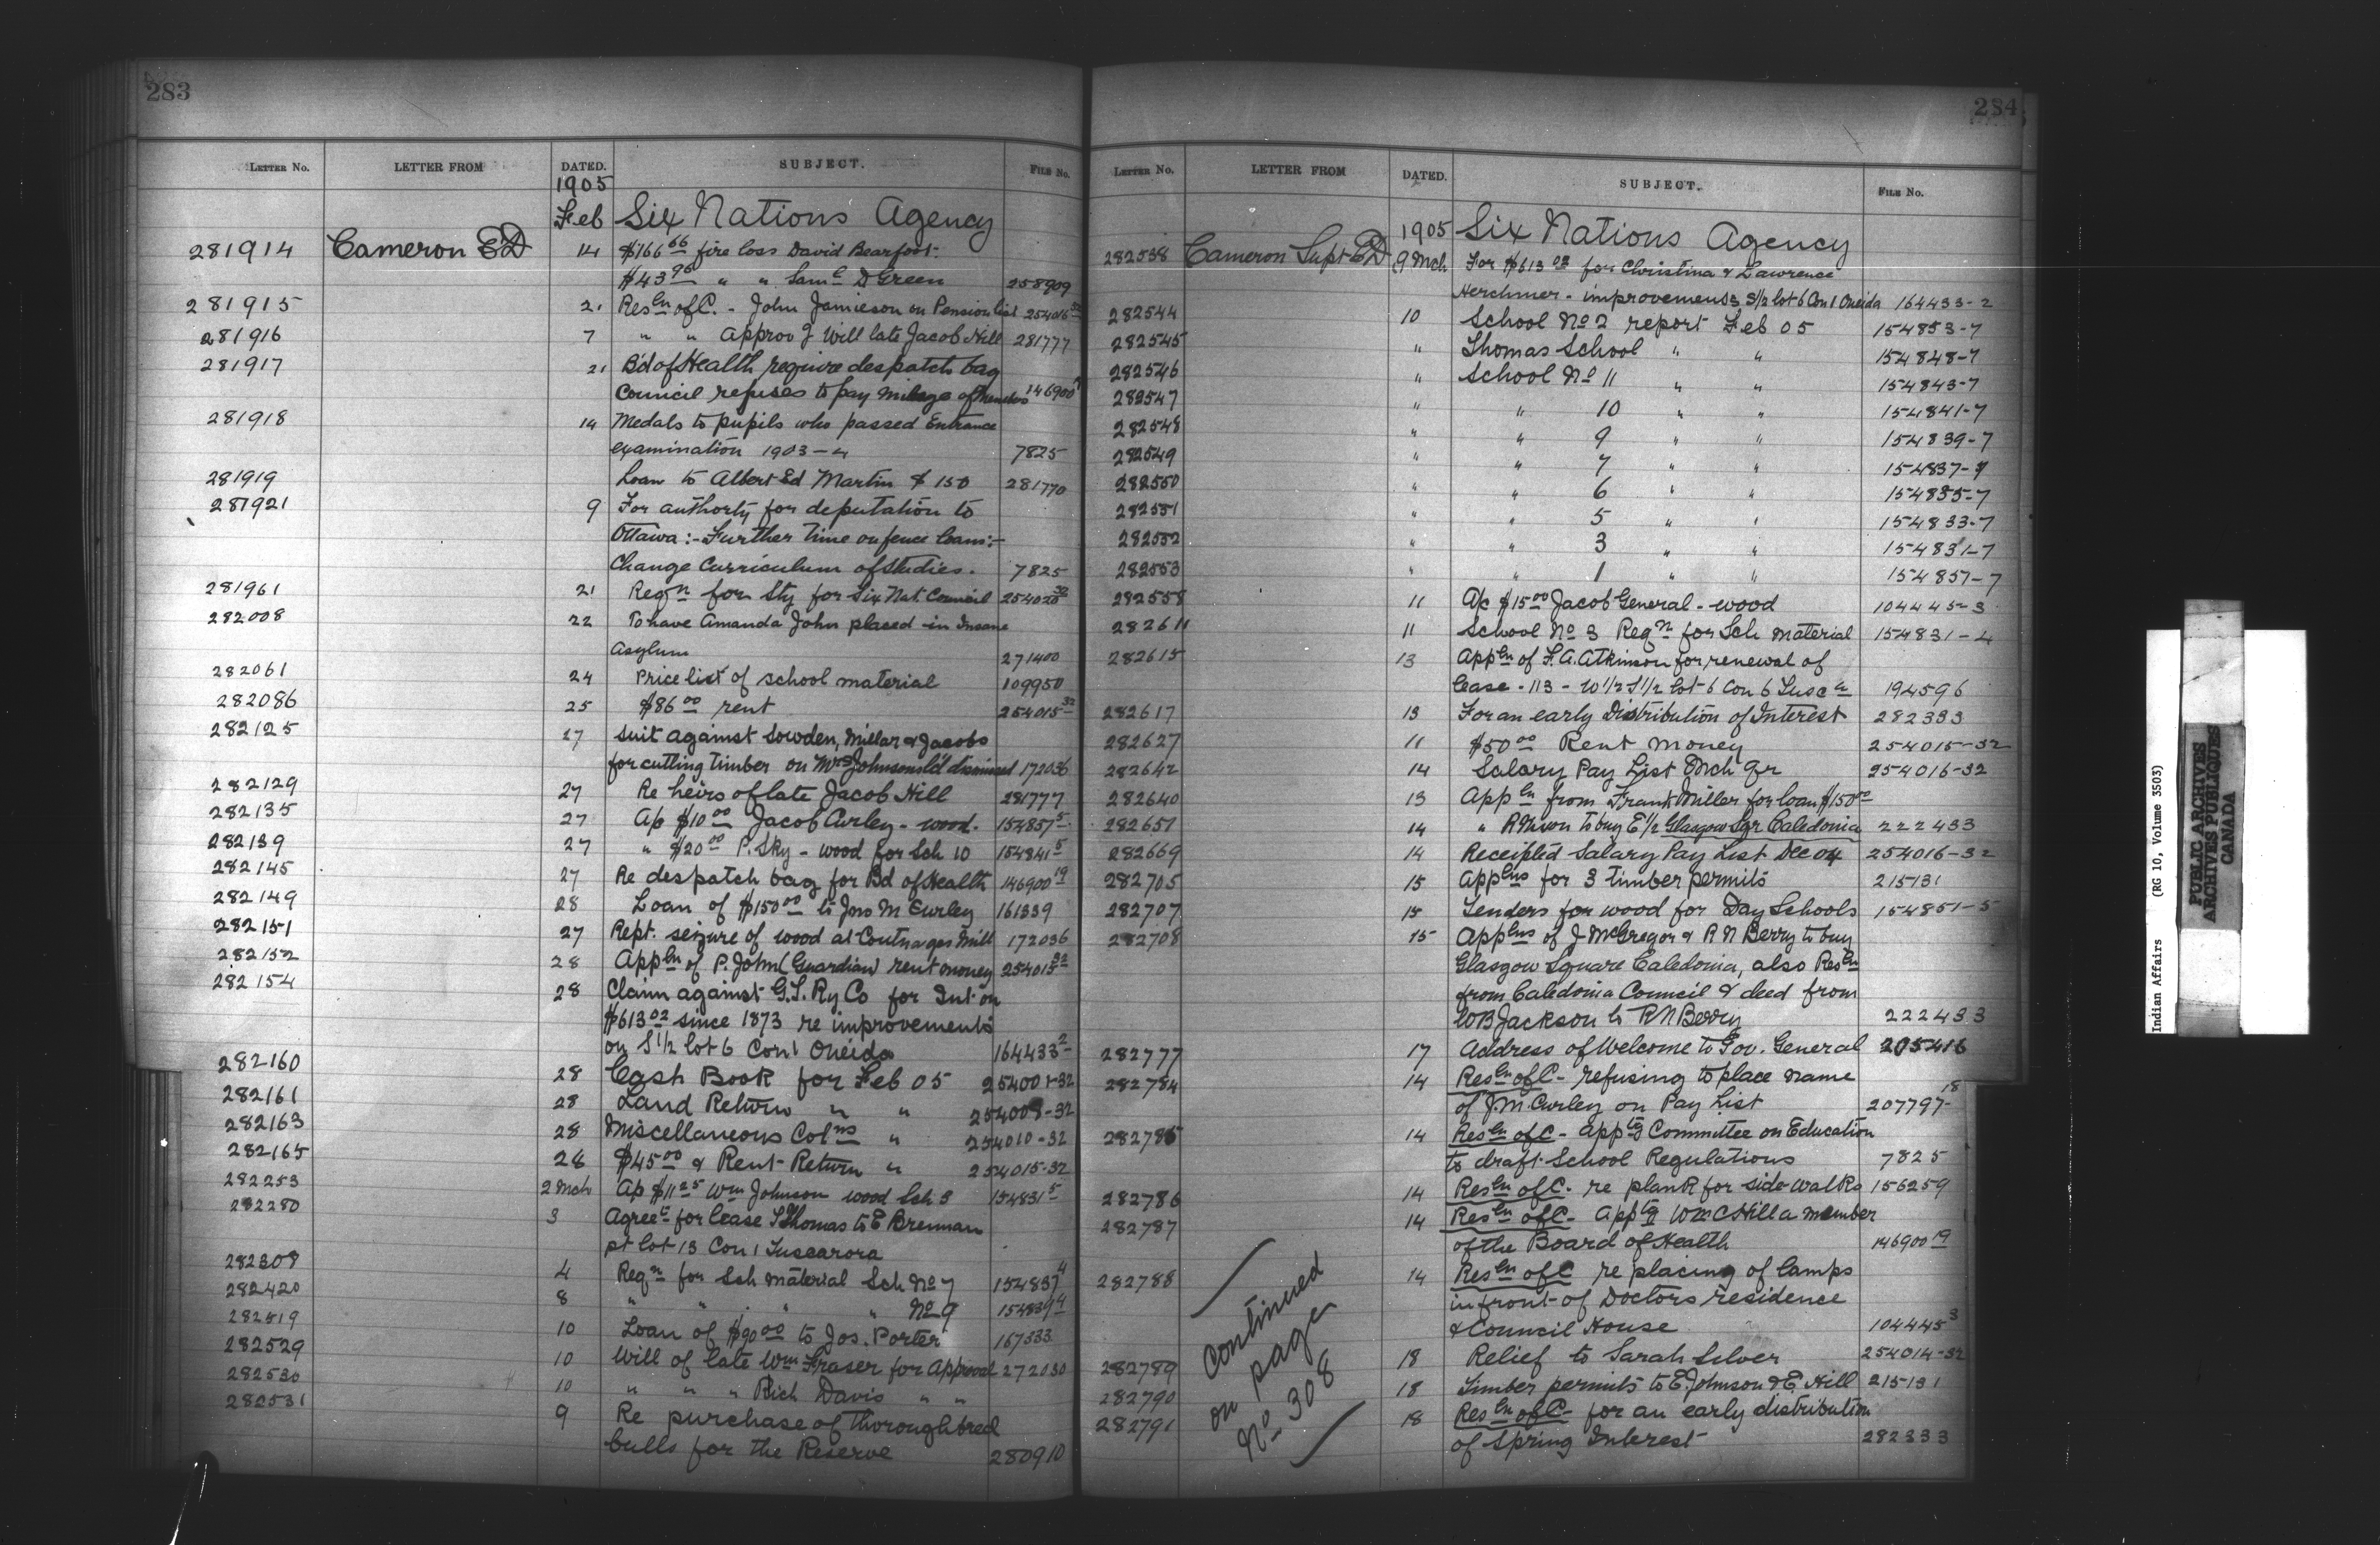 283
LETTER No. LETTER FROM DATED. SUBJECT. FILE No.
1905
Feb Six Nations Agency
281914 Cameron ED 14 $166 66 fire loss David Bearfoot.
$43 98 " " Saml D Green 258909
281915 21 Resln of C. - John Jamieson on Pension list 254016 32
281916 7 " " Approvg Will late Jacob Hill 281777
281917 21 Bd of Health require despatch bag
Council refuses to pay mileage of Members 146900
281918 14 Medals to pupils who passed Entrance
examination 1903-4 7825
281919 Loan to Albert Ed Martin $150 281770
281921 9 For authorty for deputation to
Ottawa :- Further time on fence loans :-
Change Curriculum of studies. 7825
281961 21 Reqn for Sty for Six Nat. Council 254020 32
282008 22 To have Amanda John placed in Insane
Asylum 271400
282061 24 Price list of school material 109950
282086 25 $86 00 rent 254015 32
282125 27 Suit against Sowden, Millar & Jacobs
for cutting timber on Mrs Johnsons ld dismissed 172036
282129 27 Re heirs of late Jacob Hill 281777
282135 27 A/c $10 00 Jacob Curley - wood. 154857 5
282139 27 " $20 00 P. Sky - wood for Sch 10 154841 5
282145 27 Re despatch bag for Bd of Health 146900 19
282149 28 Loan of $150 00 to Jno M Curley 161339
282151 27 Rept. seizure of wood at Mill 172036
282152 28 Appln of P. John (Guardian) rent money 254015 32
282154 28 Claim against G.T. Ry Co for Int on
$613 02 since 1873 re improvements
on S 1/2 lot 6 Con 1 Oneida 164433 2
282160 28 Cash Book for Feb 05 254001-32
282161 28 Land Return " " 254009-32
282163 28 Miscellaneous Colns " 254010-32
282165 28 $45 00 & Rent Return " 254015-32
282253 2 Mch A/c $11 25 Wm Johnson wood Sch 3 154831 5
282280 3 Agreet for lease S Thomas to E Brennan
pt lot 13 Con 1 Tuscarora
282309 4 Reqn for Sch material Sch No 7 154837 4
282420 8 " " " " No 9 154839 4
282519 10 Loan of $90 00 to Jos. Porter 167333
282529 10 Will of late Wm Fraser for Approval 272030
282530 10 " " " Rich Davis " "
282531 9 Re purchase of thoroughbred
bulls for the Reserve 280910
284
LETTER No. LETTER FROM DATED. SUBJECT. FILE No.
1905 Six Nations Agency
282538 Cameron Supt ED 9 Mch For $613 02 for Christina & Lawrence
Herchmer - improvements S 1/2 lot 6 Con 1 Oneida 164433-2
282544 10 School No 2 report Feb 05 154853-7
282545 " Thomas School " " 154848-7
282546 " School No 11 " " 154843-7
282547 " " 10 " " 154841-7
282548 " " 9 " " 154839-7
282549 " " 7 " " 154837-7
282550 " " 6 " " 154835-7
282551 " " 5 " " 154833-7
282552 " " 3 " " 154831-7
282553 " " 1 " " 154857-7
282558 11 A/c $15 00 Jacob General - wood 104445-3
282611 11 School No 3 Reqn for Sch material 154831-4
282615 13 Appln of F. A. Atkinson for renewal of
lease - 113 - W 1/2 S 1/2 lot 6 Con 6 Tusca 194596
282617 13 For an early Distribution of Interest 282333
282627 11 $50 00 Rent money 254015-32
282642 14 Salary Pay List Mch Qr 254016-32
282640 13 Appln from Frank Miller for loan $150 00
282651 14 " to buy E 1/2 Glasgow Sqr Caledonia 222433
282669 14 Receipted Salary Pay List Dec 04 254016-32
282705 15 Applns for 3 timber permits 215131
282707 15 Tenders for wood for Day Schools 154851-5
282708 15 Applns of J McGregor & R N Berry to buy
Glasgow Square Caledonia, also Resln
from Caledonia Council & deed from
W B Jackson to R N Berry 222433
282777 17 Address of Welcome to Gov. General 205416
282784 14 Resln of C - refusing to place name
of J. M. Curley on Pay List 207797-18
282785 14 Resln of C - Apptg Committee on Education
to draft School Regulations 7825
282786 14 Resln of C - re plank for side walks 156259
282787 14 Resln of C - Apptg Wm C Hill a member
of the Board of Health 146900 19
282788 14 Resln of C re placing of lamps
in front of Doctors residence
& Council House 104445 3
282789 18 Relief to Sarah Silver 254014-32
282790 18 Timber permits to E. Johnson & E. Hill 215131
282791 18 Resln of C - for an early distribution
of Spring Interest 282333
Continued
on page
No 308
Indian Affairs (RG 10, Volume 3503)
PUBLIC ARCHIVES
ARCHIVES PUBLIQUES
CANADA